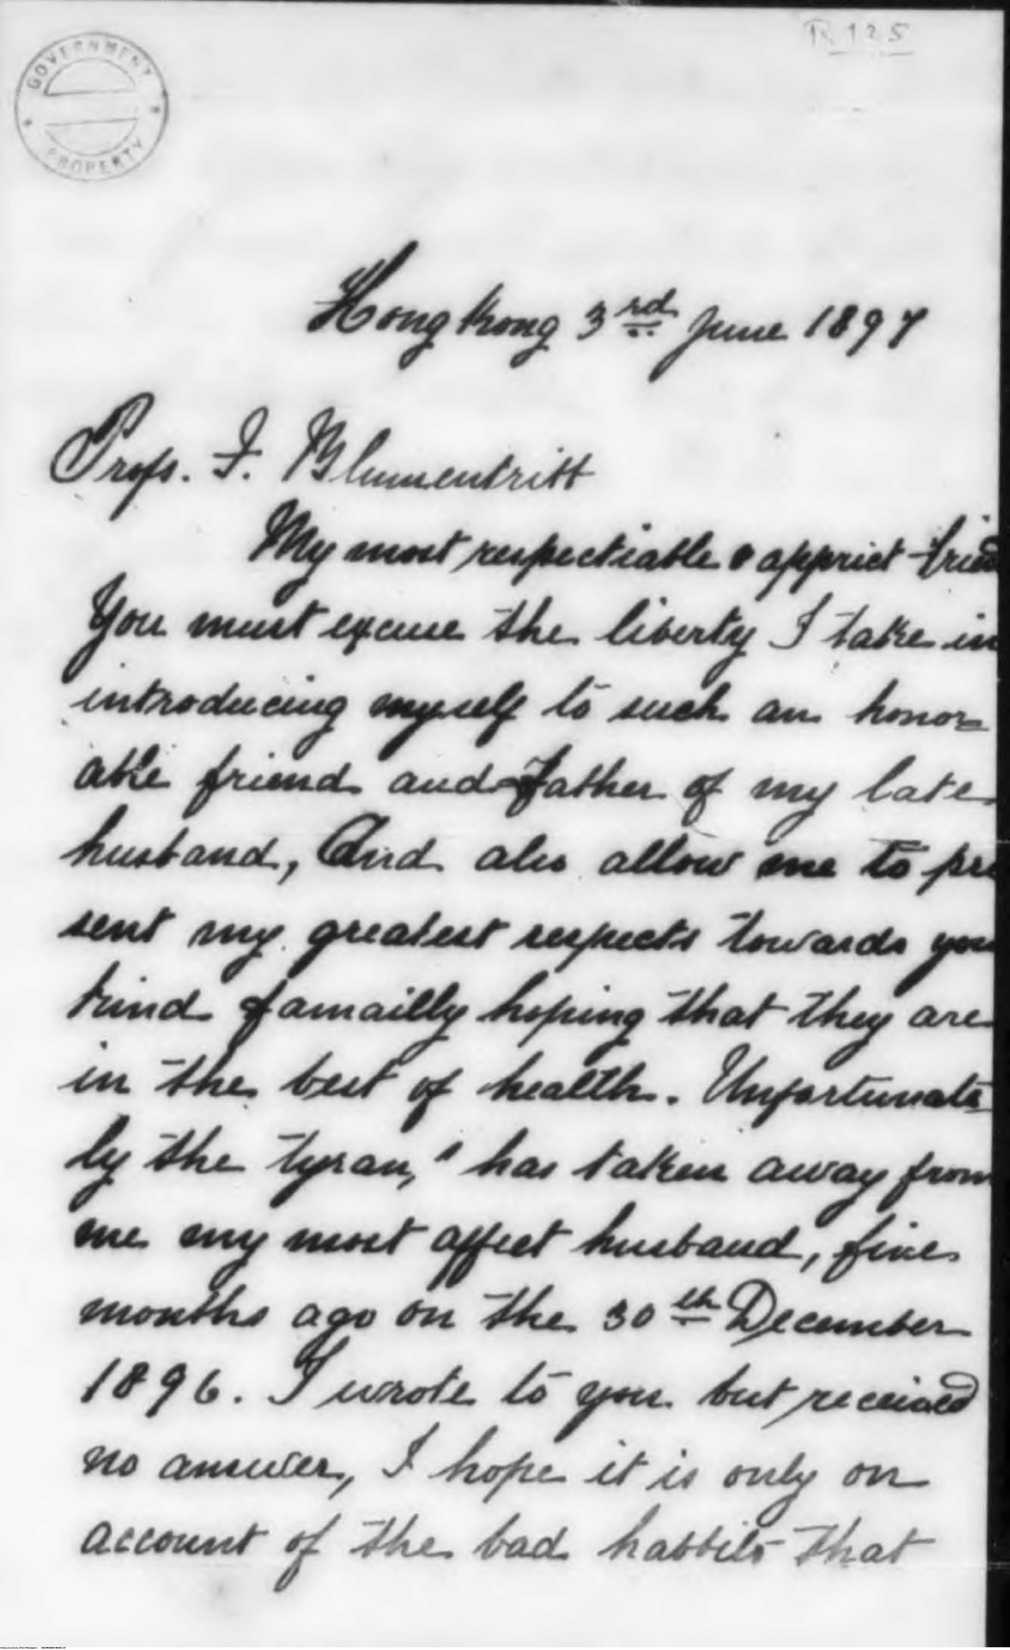 R 125
GOVERNMENT
PROPERTY
Hong Kong 3rd June 1897
Profs. F. Blumentritt
My most respectiable & apprict friend
You must excuse the liberty I take in
introducing myself to such an honor=
able friend and father of my late
husband, And also allow me to pre
sent my greatest respects towards you
kind famailly hoping that they are
in the best of health. Unfortunate
ly the tyran, has taken away from
me my most affect husband, five
months ago on the 30th December
1896. I wrote to you but received
no answer, I hope it is only on
account of the bad habbits that